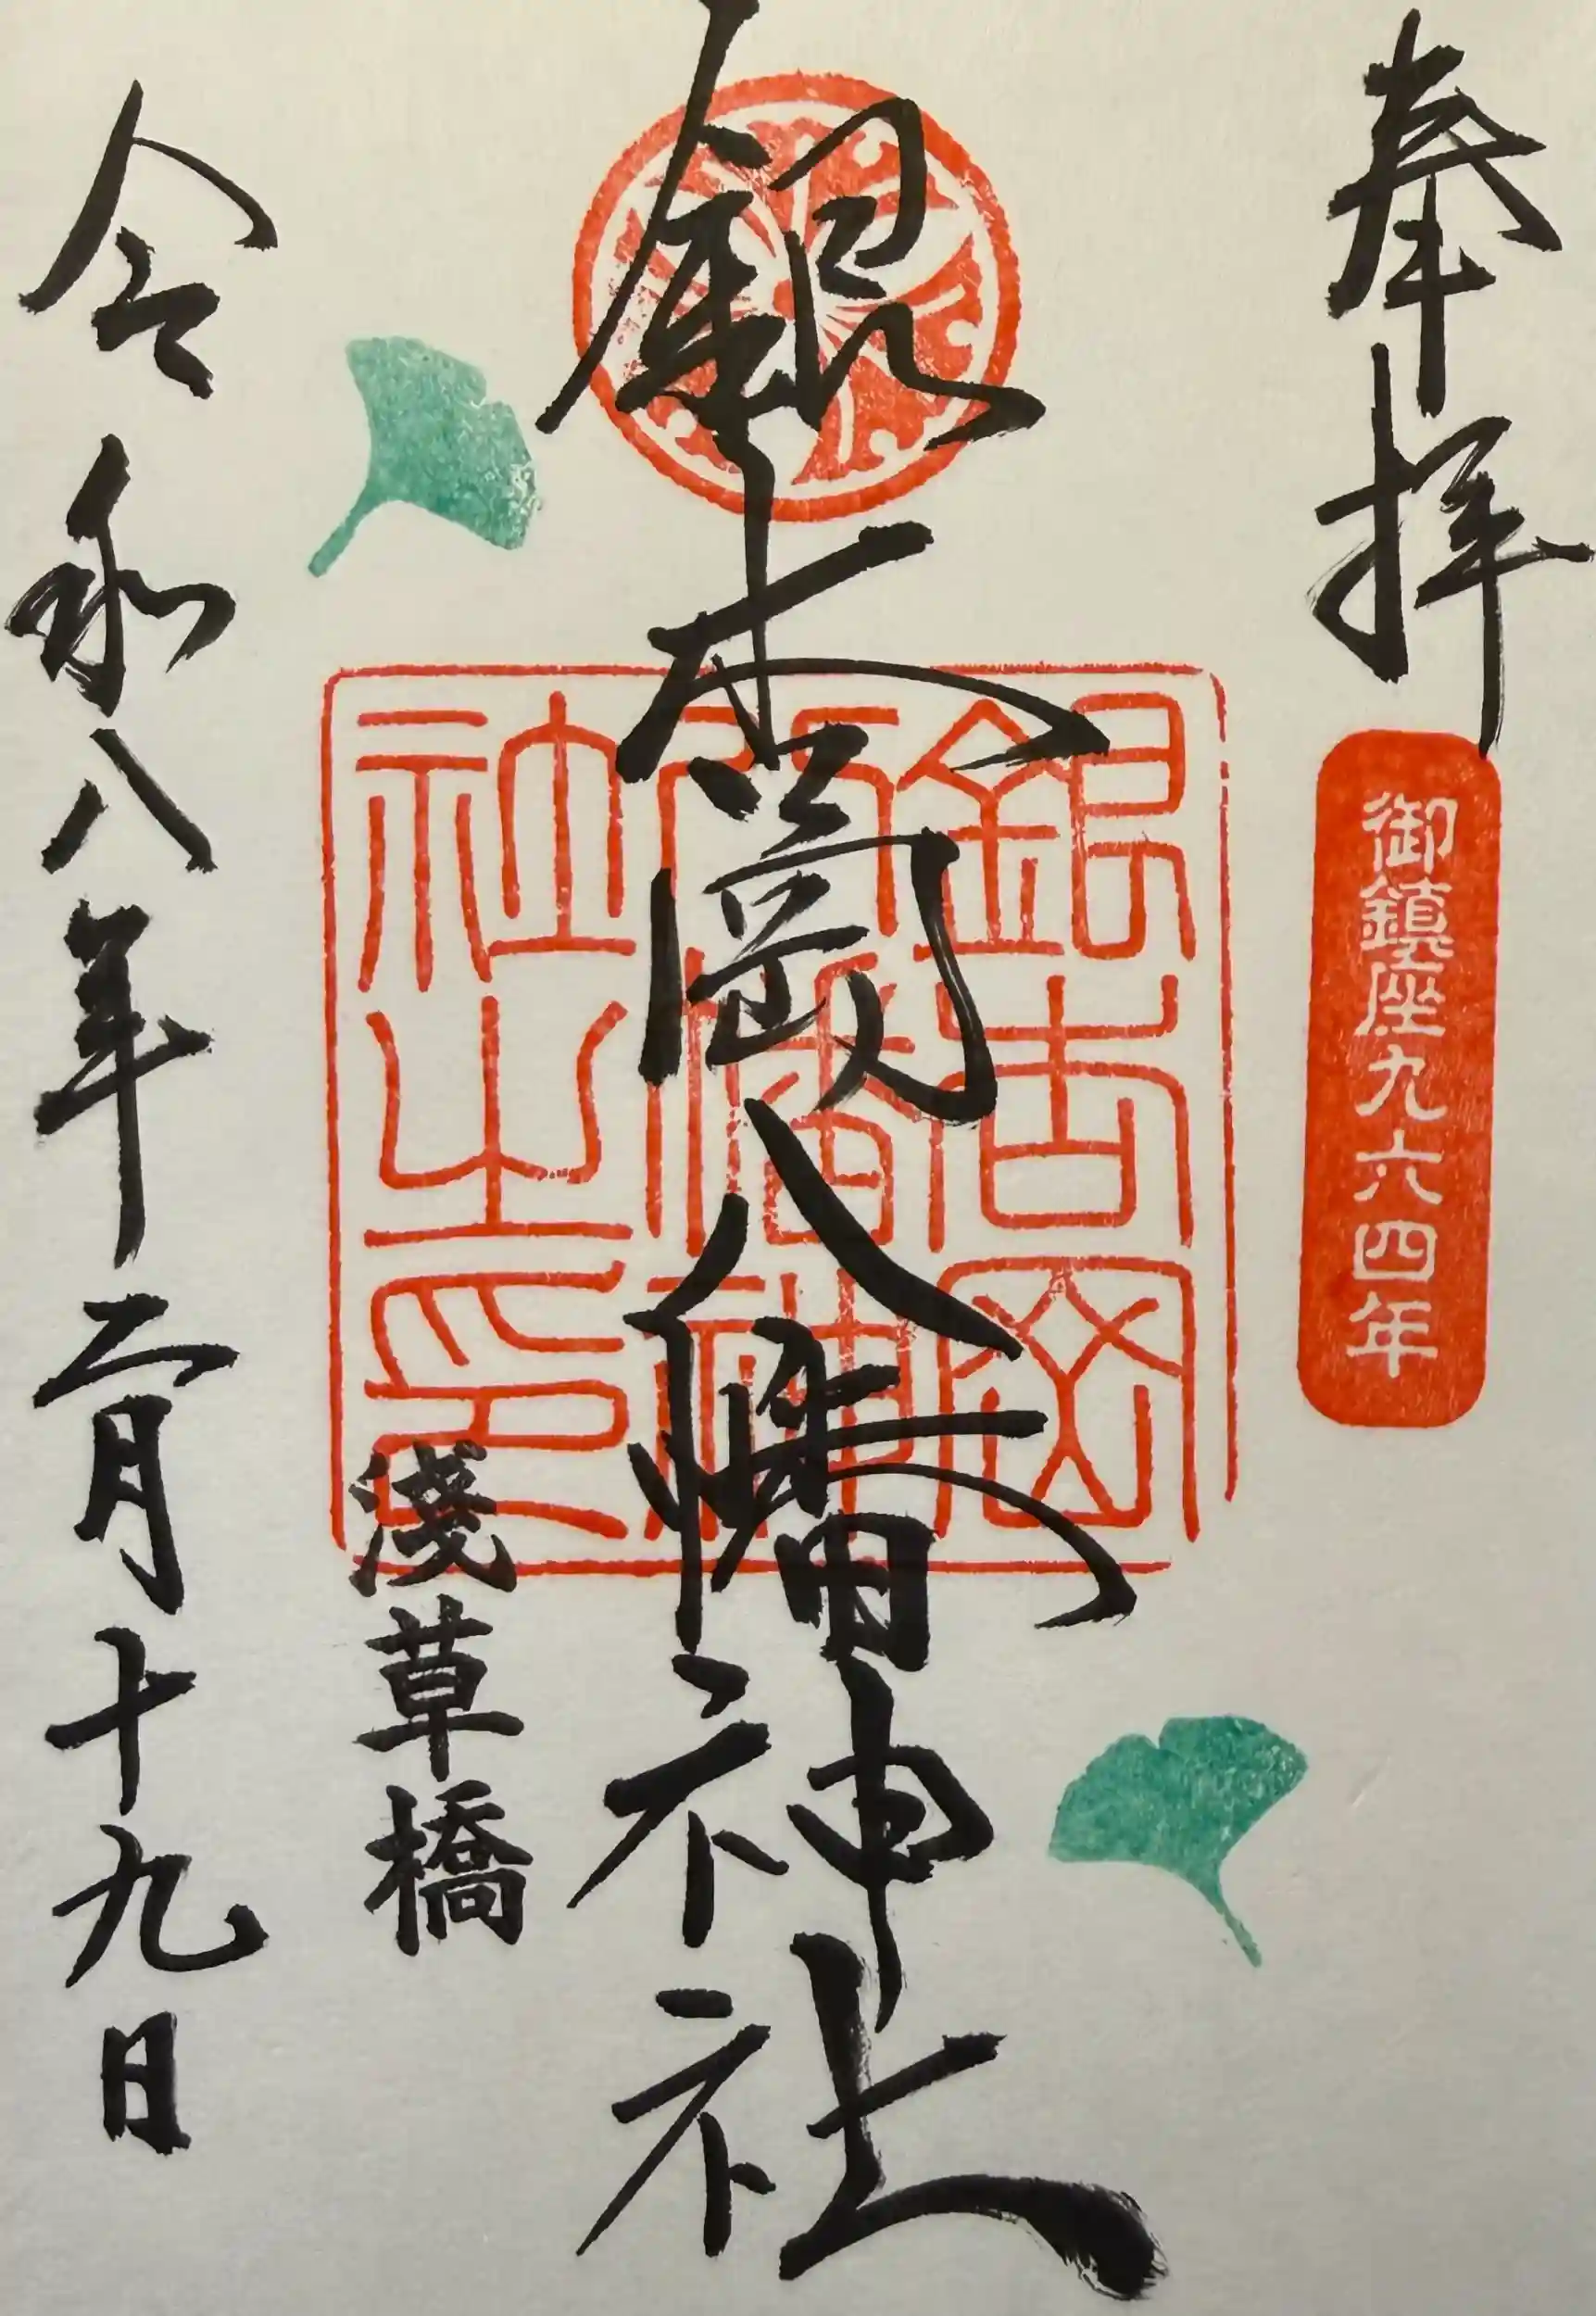 奉拝
御鎮座九六四年
銀杏岡八幡神社
銀杏岡
八幡神
社之印
淺草橋
令和八年二月十九日